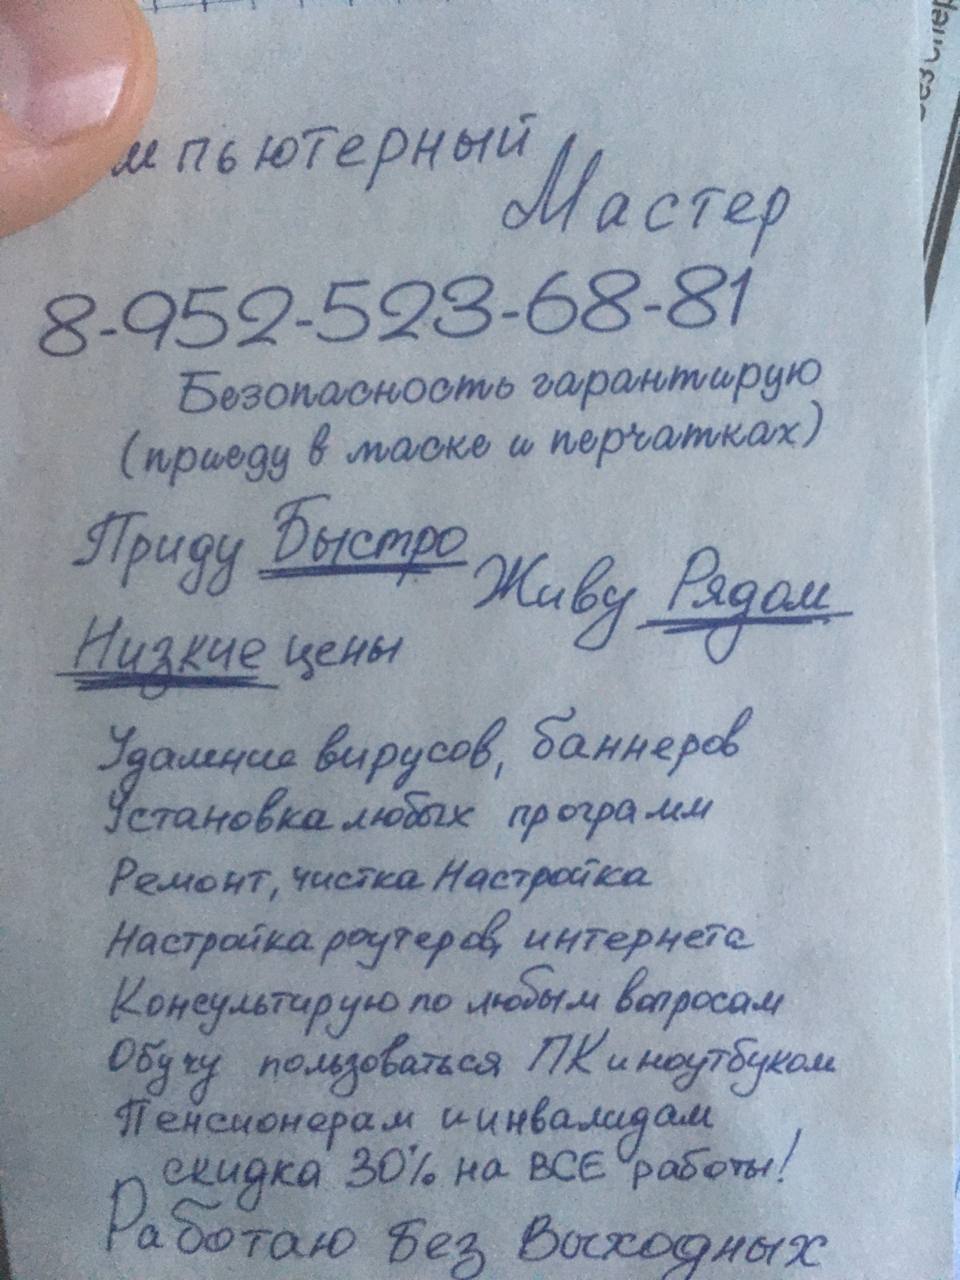 мпьютерный
Мастер
8-952-523-68-81
Безопасность гарантирую
(приеду в маске и перчатках)
Приду Быстро
Живу Рядом
Низкие цены
Удаление вирусов, баннеров
Установка любых программ
Ремонт, чистка Настройка
Настройка роутеров, интернета
Консультирую по любым вопросам
Обучу пользоваться ПК и ноутбуком
Пенсионерам и инвалидам
скидка 30% на ВСЕ работы!
Работаю Без Выходных